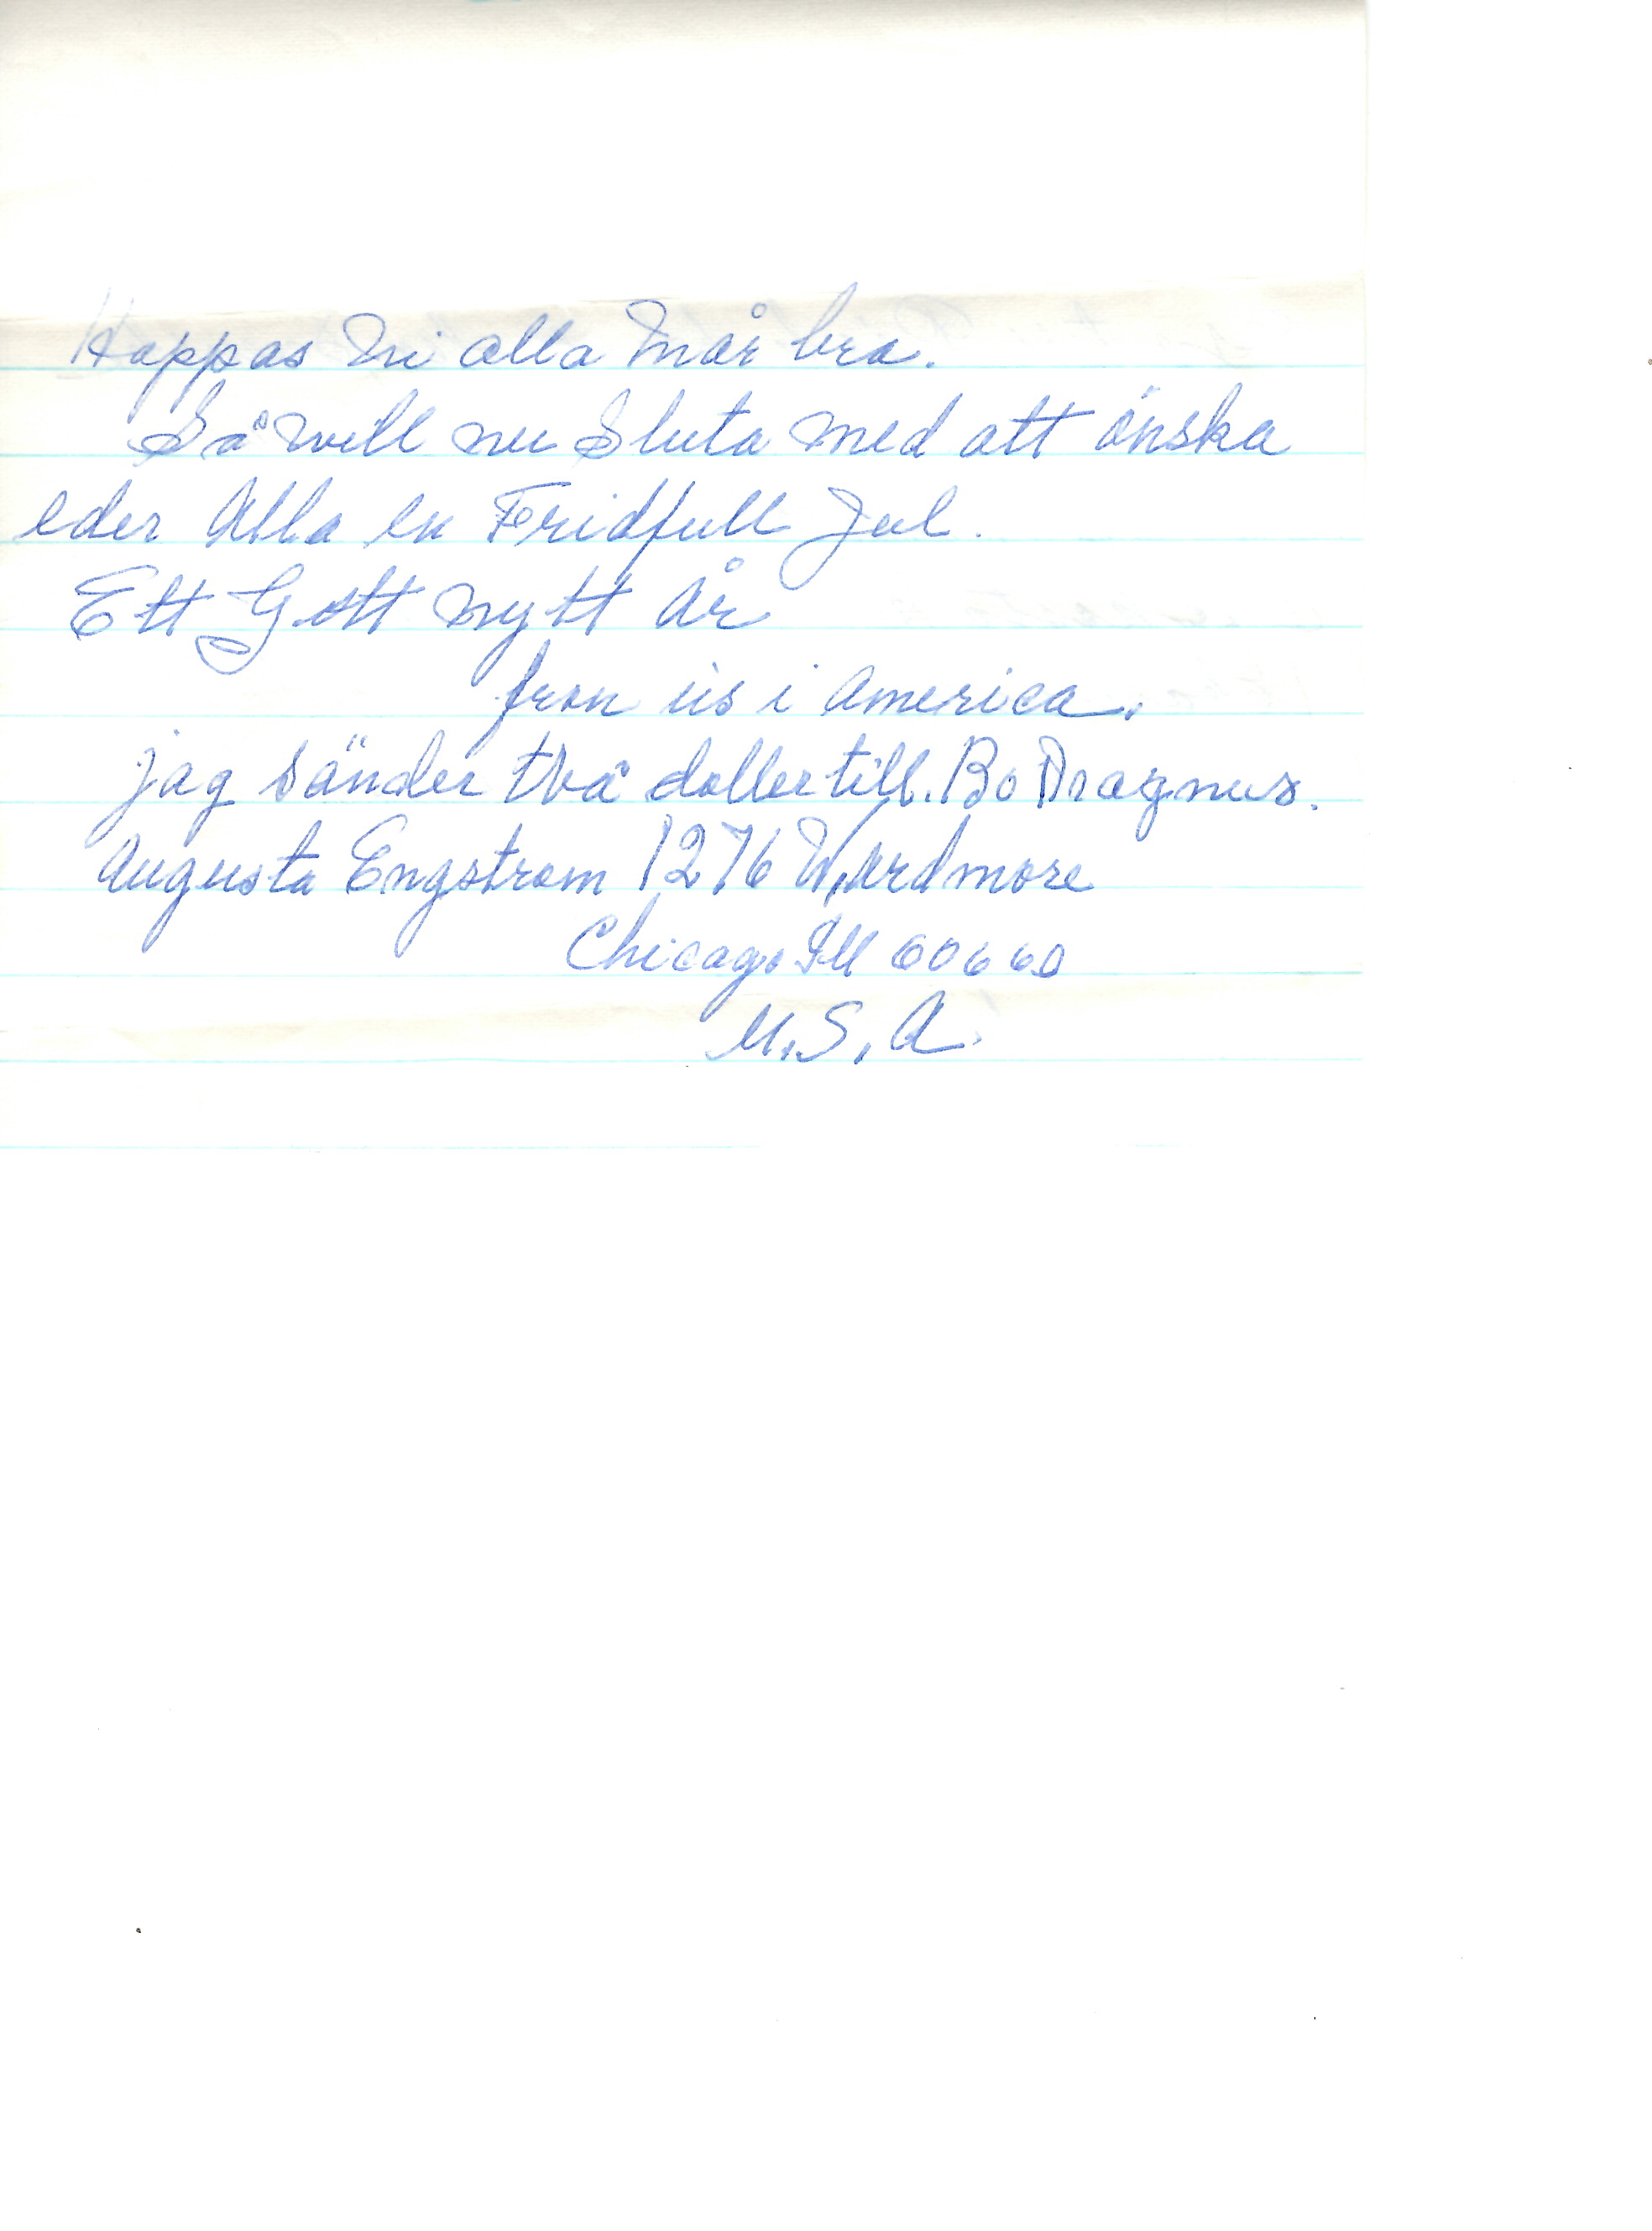 Hoppas Ni alla mår bra.
Så will nu Sluta med att önska
eder Alla en Fridfull Jul.
Ett Gott nytt År
fron us i America.
jag sänder två doller till. Bo Magnus.
Augusta Engstrom 1276 W. Ardmore
Chicago Ill 60660
U.S.A.